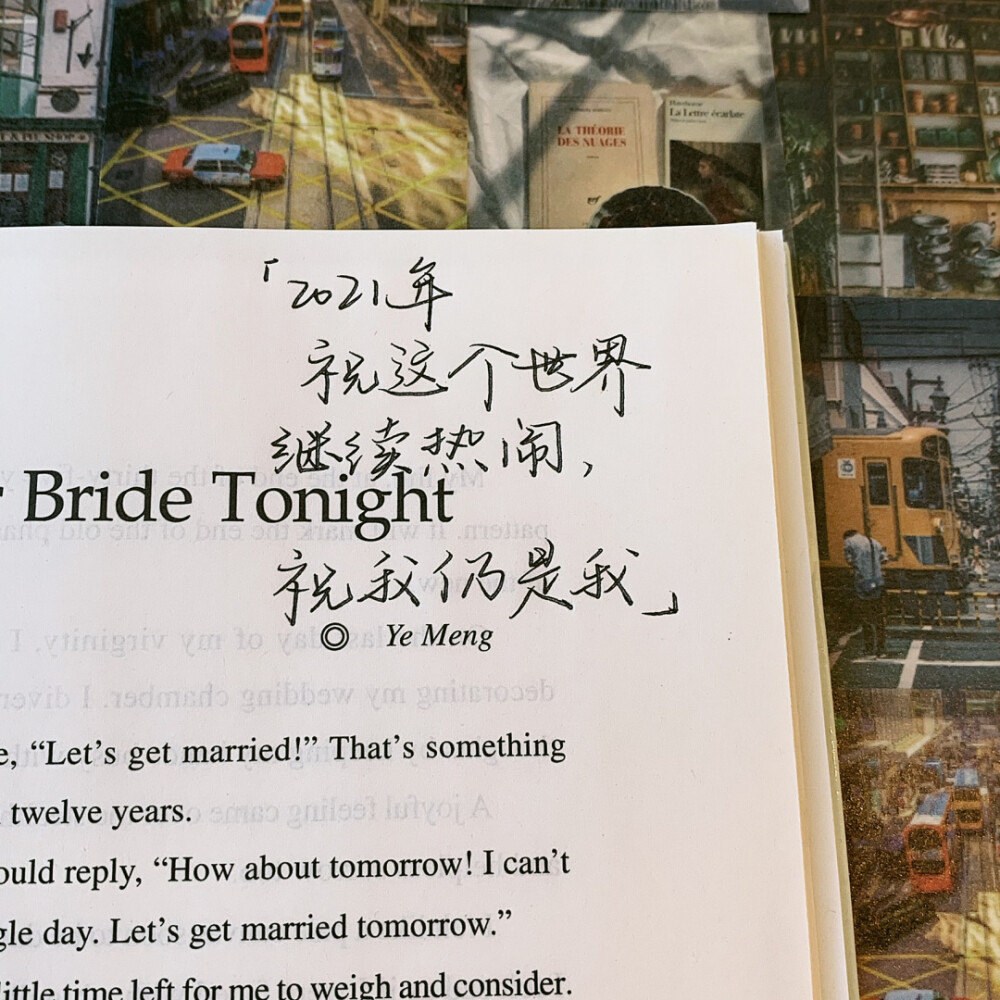 & PIE SHOP
LA THÉORIE
DES NUAGES
Hawthorne
La Lettre écarlate
「2021年
祝这个世界
继续热闹,
Bride Tonight
祝我仍是我」
◎ Ye Meng
e, “Let’s get married!” That’s something
twelve years.
ould reply, “How about tomorrow! I can’t
gle day. Let’s get married tomorrow.”
little time left for me to weigh and consider.